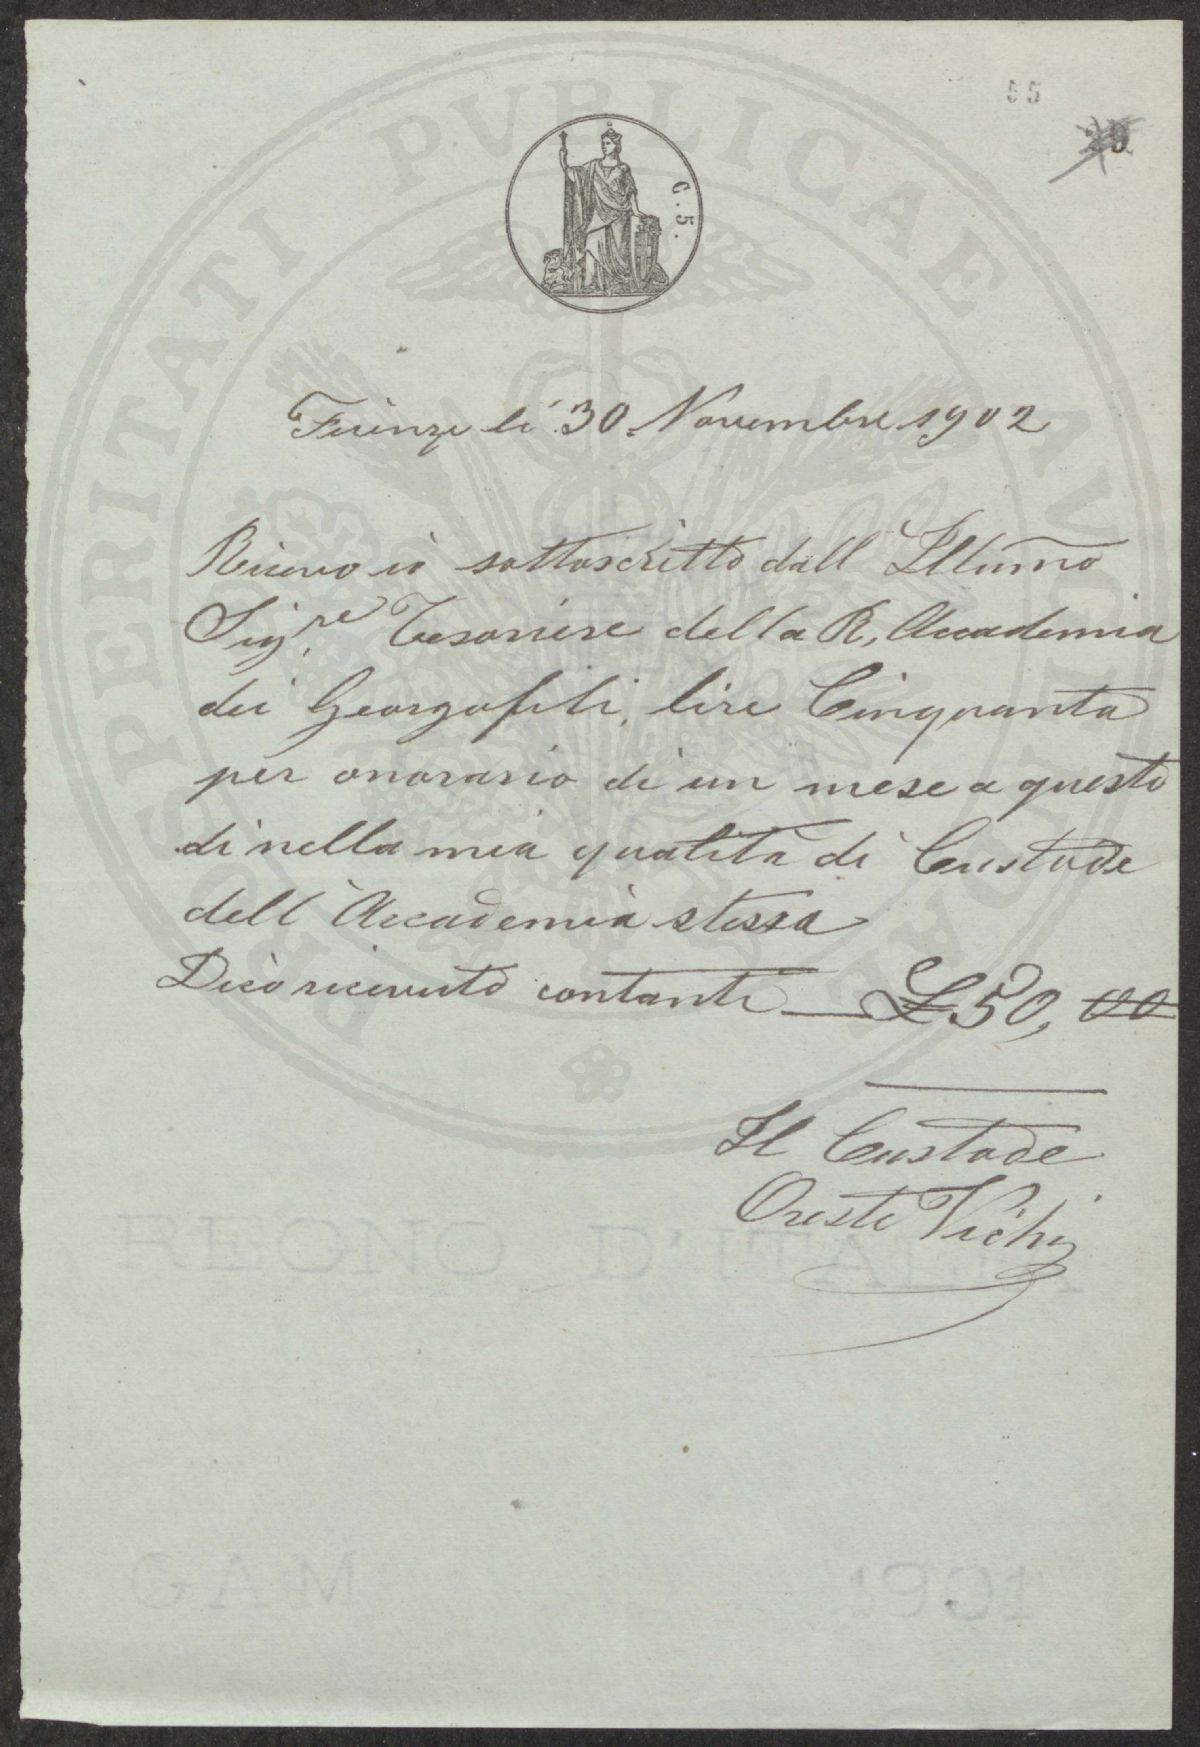 55
29
C. 5.
PROSPERITATI PVBLICAE AVGENDAE
Firenze li 30 Novembre 1902
Ricevo io sottoscritto dall Illumo
Sig.re Tesoriere della R. Accademia
dei Georgofili, lire Cinquanta
per onorario di un mese a questo
di nella mia qualità di Custode
dell'Accademia stessa
Dico ricevuto contanti £50,00
Il Custode
Oreste Vichi
REGNO D'ITALIA
GAM 1901